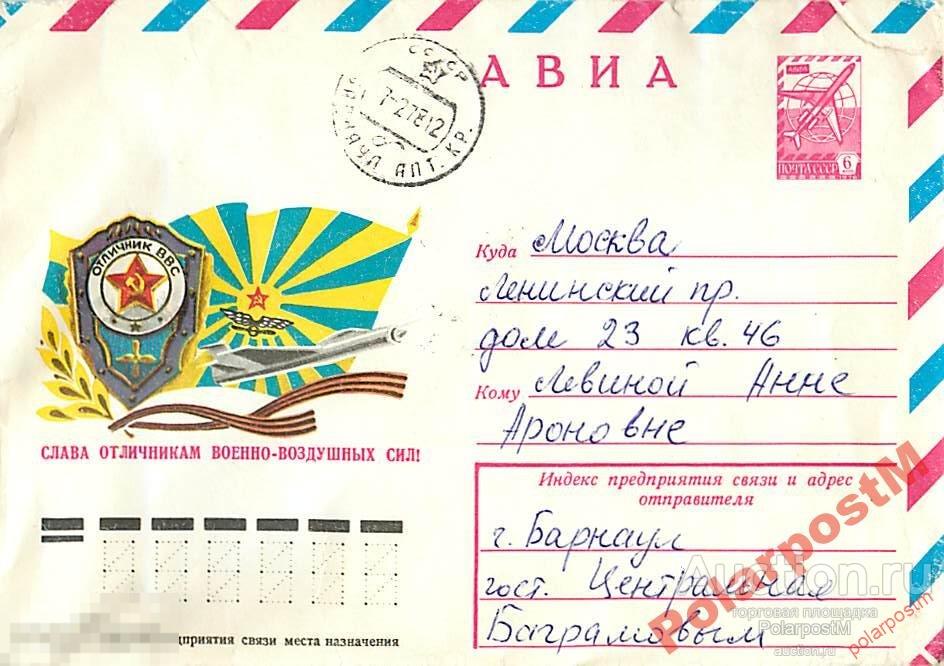 АВИА
СССР
7-2 78 12
БАРНАУЛ АЛТ. КР.
АВИА
ПОЧТА СССР 6
ОТЛИЧНИК ВВС
Куда Москва
Ленинский пр.
дом 23 кв. 46
Кому Левиной Анне
Ароновне
СЛАВА ОТЛИЧНИКАМ ВОЕННО-ВОЗДУШНЫХ СИЛ!
Индекс предприятия связи и адрес
отправителя
г. Барнаул
гост. Центральная
Баграмовым
связи места назначения
PolarpostM
Auction.ru
торговая площадка
PolarpostM
auction.ru
polarpostm